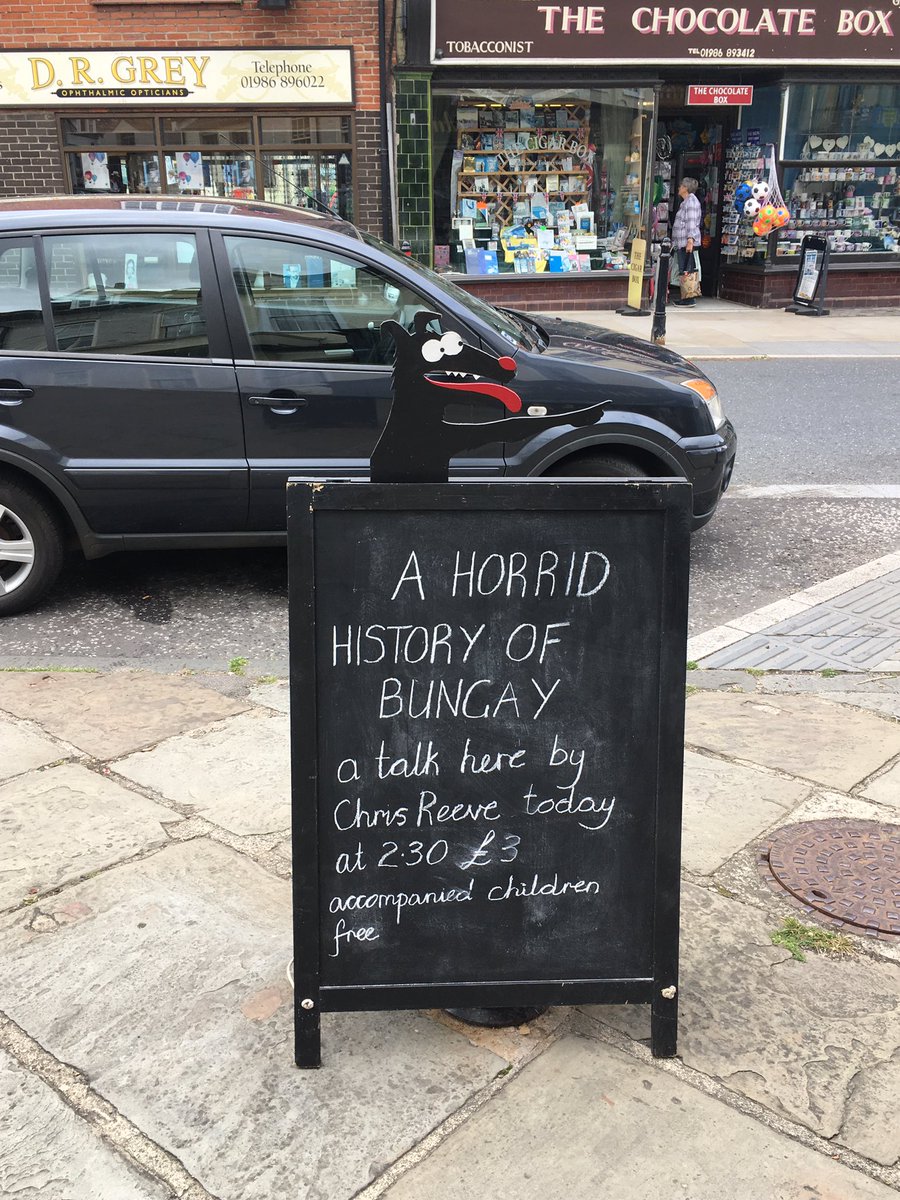 D.R. GREY
OPHTHALMIC OPTICIANS
Telephone
01986 896022
THE CHOCOLATE BOX
TOBACCONIST
TEL 01986 893412
THE CHOCOLATE
BOX
THE CIGAR BOX
A HORRID
HISTORY OF
BUNGAY
a talk here by
Chris Reeve today
at 2.30 £3
accompanied children
free